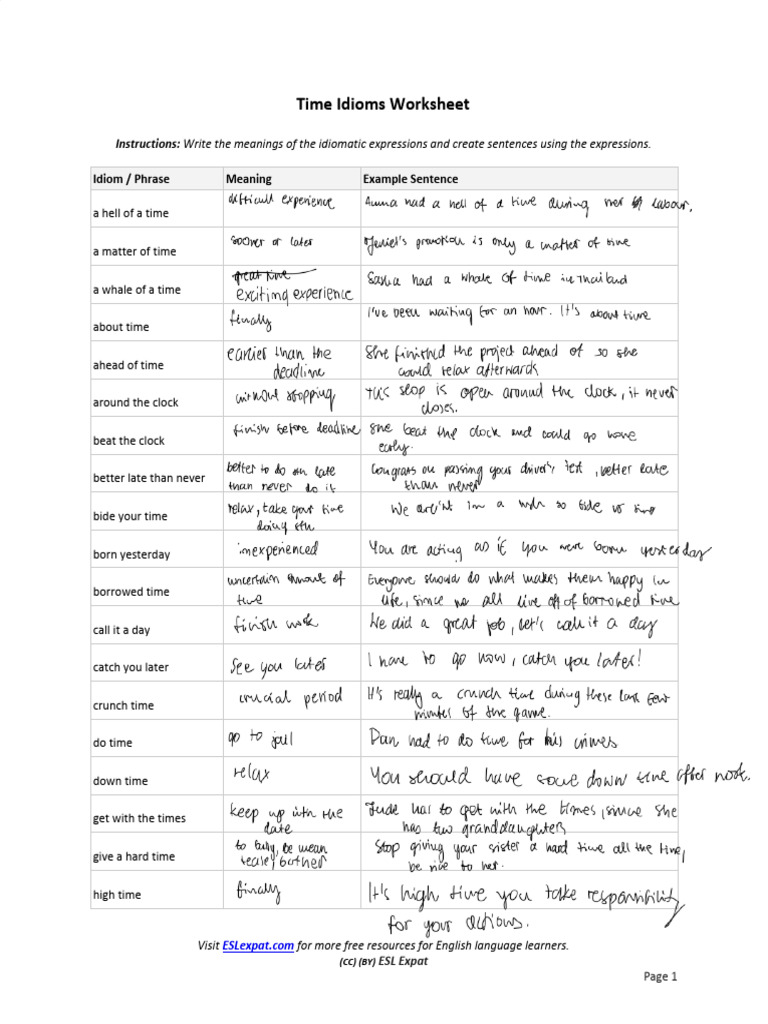 Time Idioms Worksheet
Instructions: Write the meanings of the idiomatic expressions and create sentences using the expressions.
Idiom / Phrase Meaning Example Sentence
a hell of a time difficult experience Anna had a hell of a time during her labour.
a matter of time sooner or later promotion is only a matter of time
a whale of a time great time exciting experience Sasha had a whale of time in Thailand
about time finally I've been waiting for an hour. It's about time
ahead of time earlier than the She finished the project ahead of so she
deadline could relax afterwards
around the clock without stopping This shop is open around the clock, it never
closes.
beat the clock finish before deadline She beat the clock and could go home
early.
better late than never better to do late Congrats on passing your driver's test, better late
than never do it than never
bide your time relax, take your time We in a so bide
doing
born yesterday inexperienced You are acting as if you were born yesterday
borrowed time uncertain amount of Everyone should do what makes them happy in
time life, since all live off of borrowed time
call it a day finish work We did a great job, let's call it a day
catch you later see you later I have to go now, catch you later!
crunch time crucial period It's really a crunch time during these last few
minutes of the game.
do time go to jail Dan had to do time for his crimes
down time relax You should have some down time after
get with the times keep up with the Jude has to get with the times, since she
date has two granddaughters
give a hard time to bully, be mean Stop giving your sister a hard time all the time,
bother be nice to her.
high time finally It's high time you take responsibility
for your actions.
Visit ESLexpat.com for more free resources for English language learners.
(CC) (BY) ESL Expat
Page 1